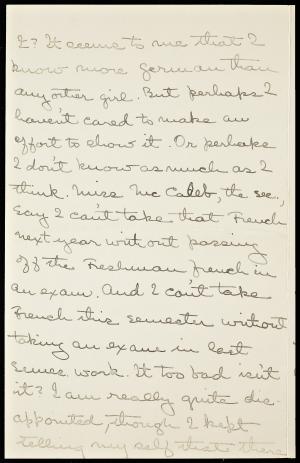 I? It seems to me that I
know more german than
any other girl. But perhaps I
haven't cared to make an
effort to show it. Or perhaps
I don't know as much as I
think. Miss Mc Caleb, the sec.,
say I can't take that French
next year without passing
off the Freshman french in
an exam. And I can't take
French this semester without
taking an exam in last
semes. work. It too bad isn't
it? I am really quite dis-
appointed, though I kept
telling my self that there